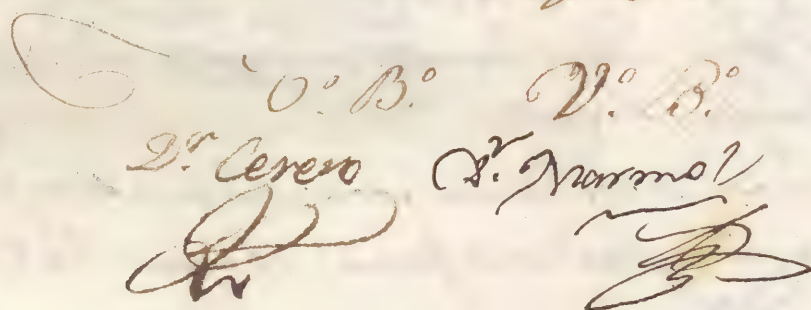 V.º B.º V.º B.º
D.ʳ Cerero D.ʳ Marmol